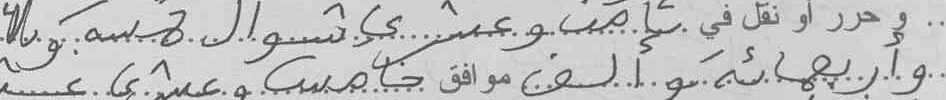 .. و حرر او نقل في ثامن وعشري شوال خمسة و
وأربعمائة وألف موافق خامس وعشري